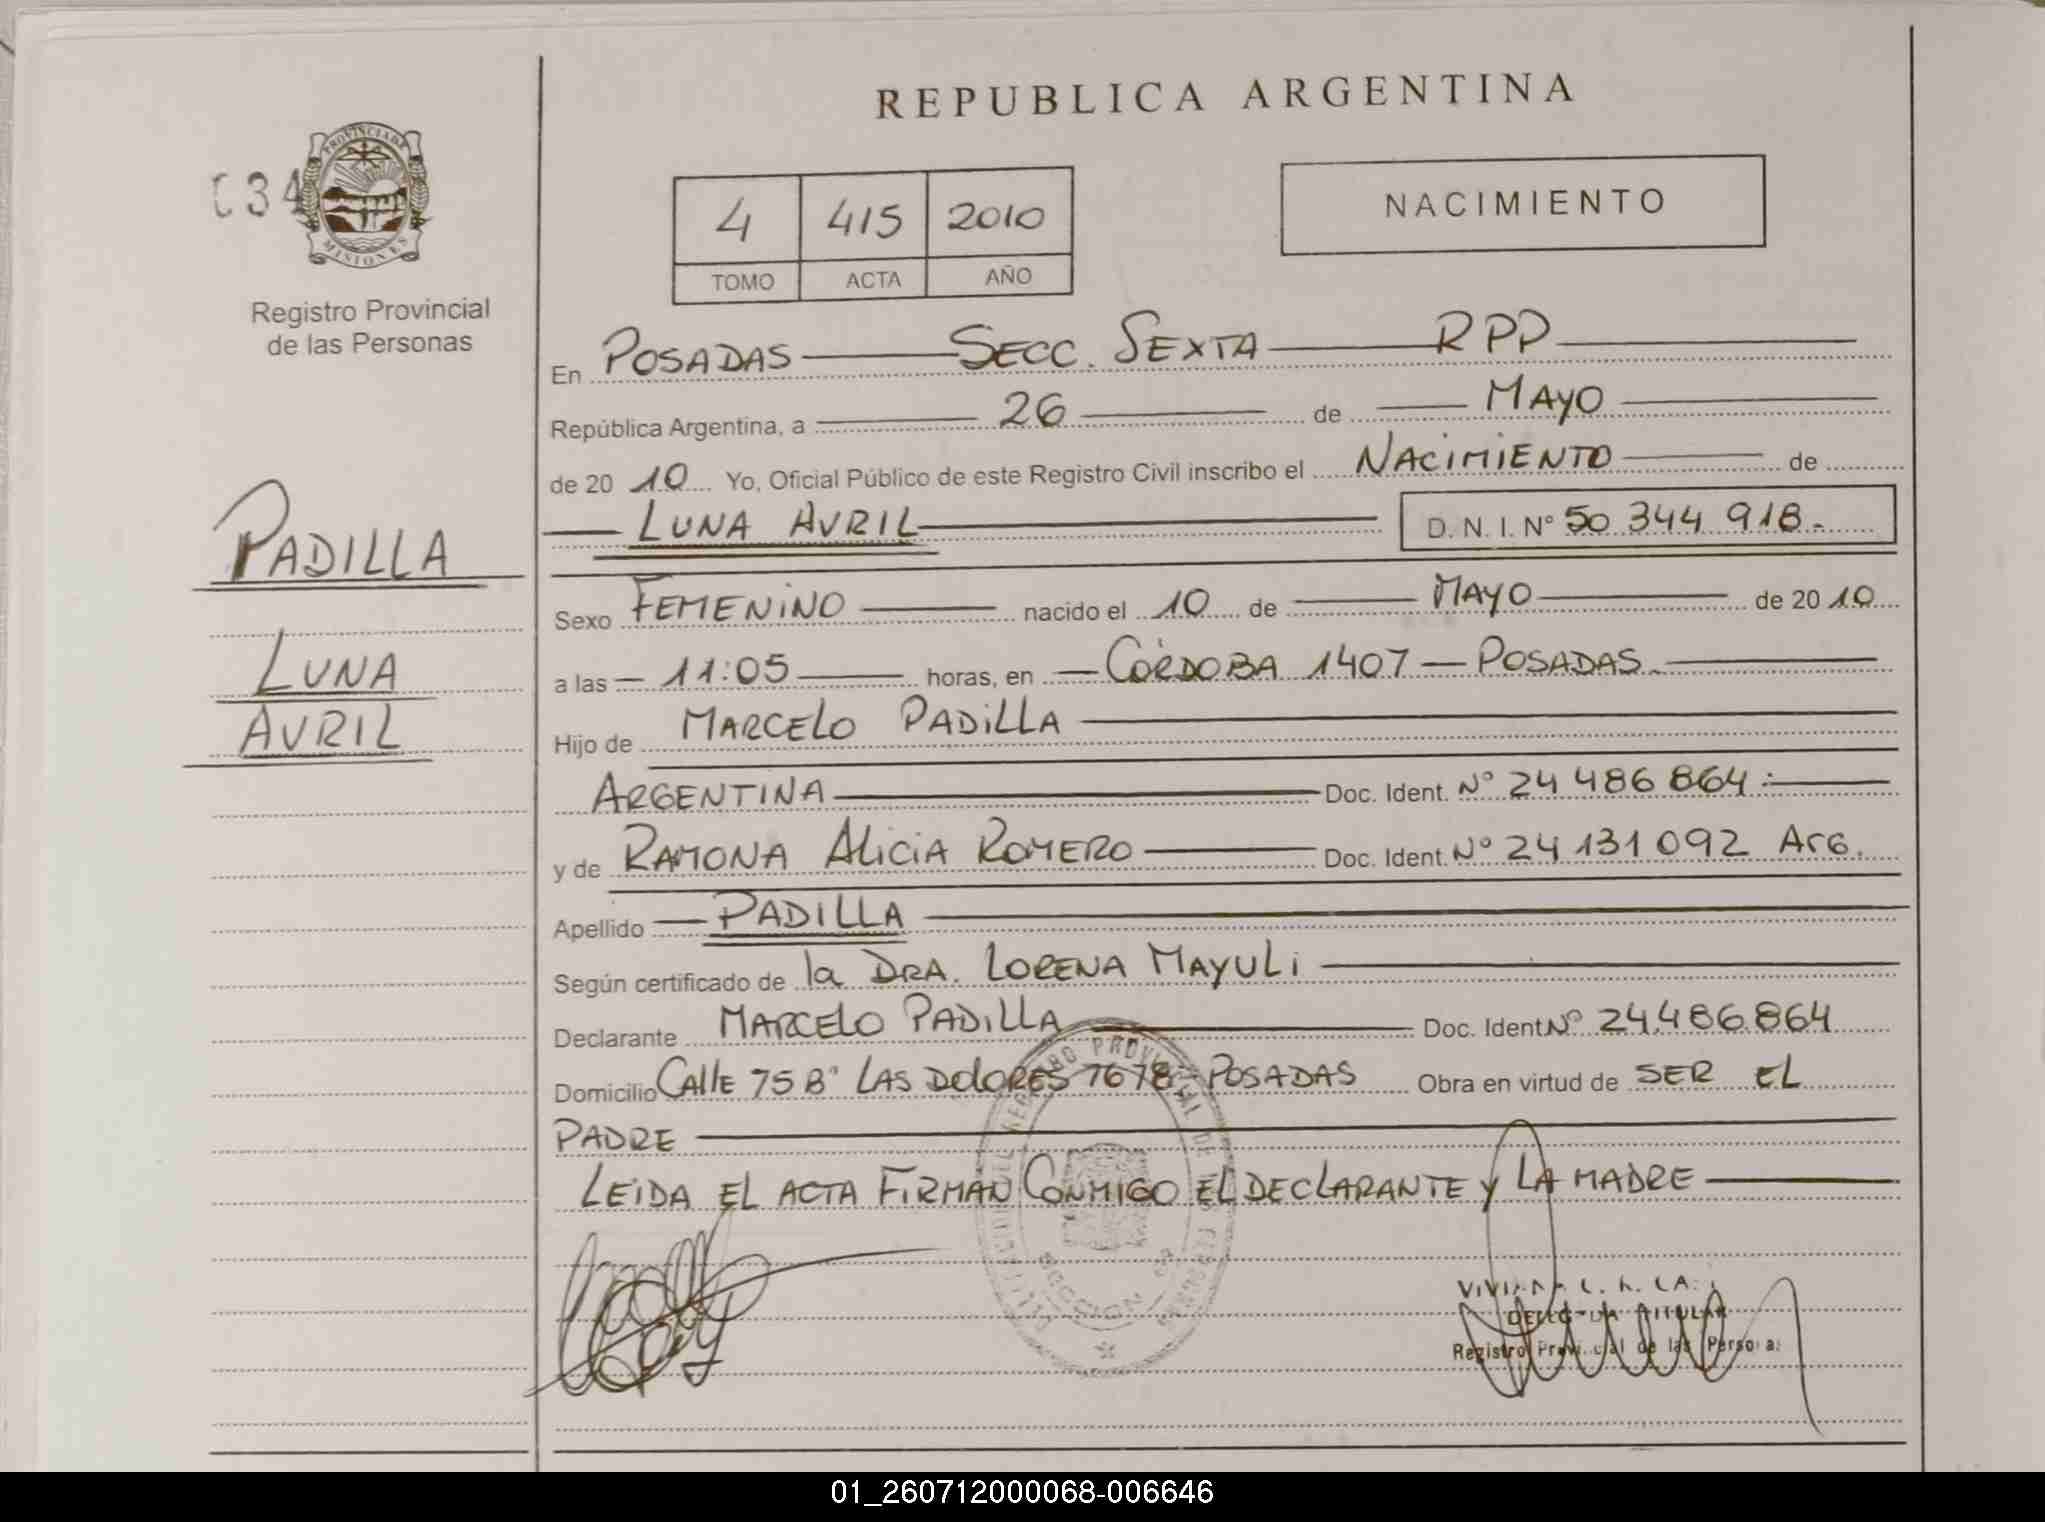 REPUBLICA ARGENTINA
034
PROVINCIA DE
MISIONES
Registro Provincial
de las Personas
4 415 2010
TOMO ACTA AÑO
NACIMIENTO
En POSADAS SECC. SEXTA RPP
República Argentina, a 26 de MAYO
de 20 10 Yo, Oficial Público de este Registro Civil inscribo el NACIMIENTO de
LUNA AVRIL D.N.I. N° 50 344 918.-
PADILLA
LUNA
AVRIL
Sexo FEMENINO nacido el 10 de MAYO de 20 10
a las 11:05 horas, en CÓRDOBA 1407 - POSADAS.
Hijo de MARCELO PADILLA
ARGENTINA Doc. Ident. N° 24 486 864.-
y de RAMONA ALICIA ROMERO Doc. Ident. N° 24 131 092 ARG.
Apellido PADILLA
Según certificado de la DRA. LORENA MAYULI
Declarante MARCELO PADILLA Doc. Ident N° 24.486.864
Domicilio CALLE 75 B° LAS DOLORES 7678 - POSADAS Obra en virtud de SER EL
PADRE
LEIDA EL ACTA FIRMAN CONMIGO EL DECLARANTE Y LA MADRE
REGISTRO PROVINCIAL DE LAS PERSONAS
SECCION
TITULAR
Registro Provincial de las Personas
01_260712000068-006646